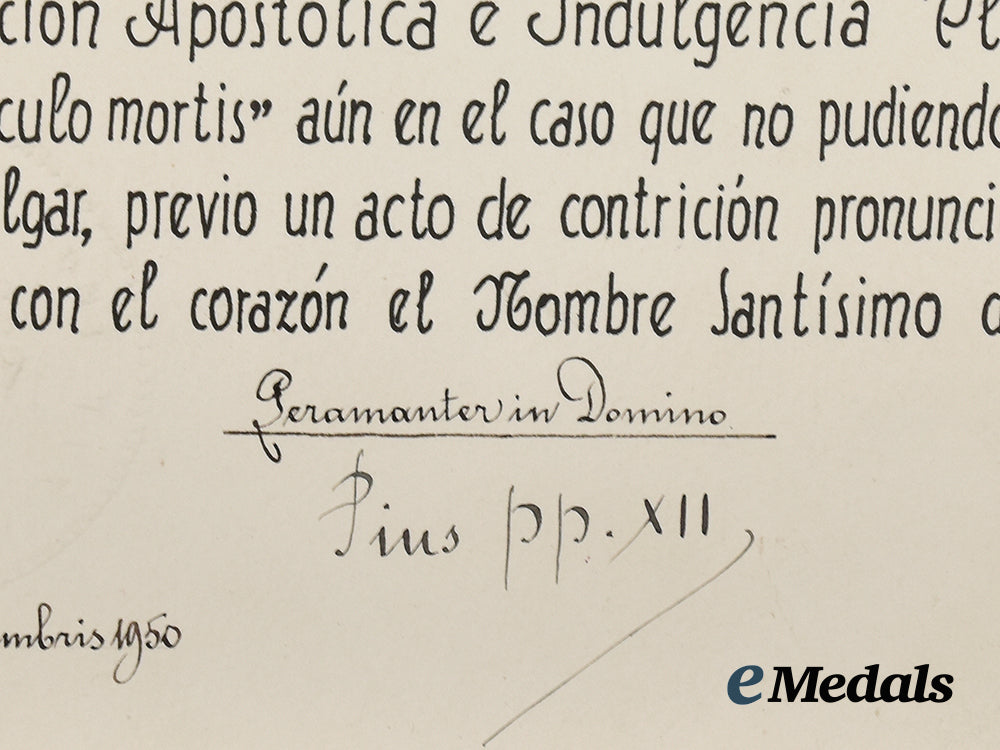 ción Apostólica e Indulgencia "Pl
culo mortis" aún en el caso que no pudiendo
lgar, previo un acto de contrición pronunci
con el corazón el Nombre Santísimo d
Peramanter in Domino
Pius pp. XII
mbris 1950
eMedals